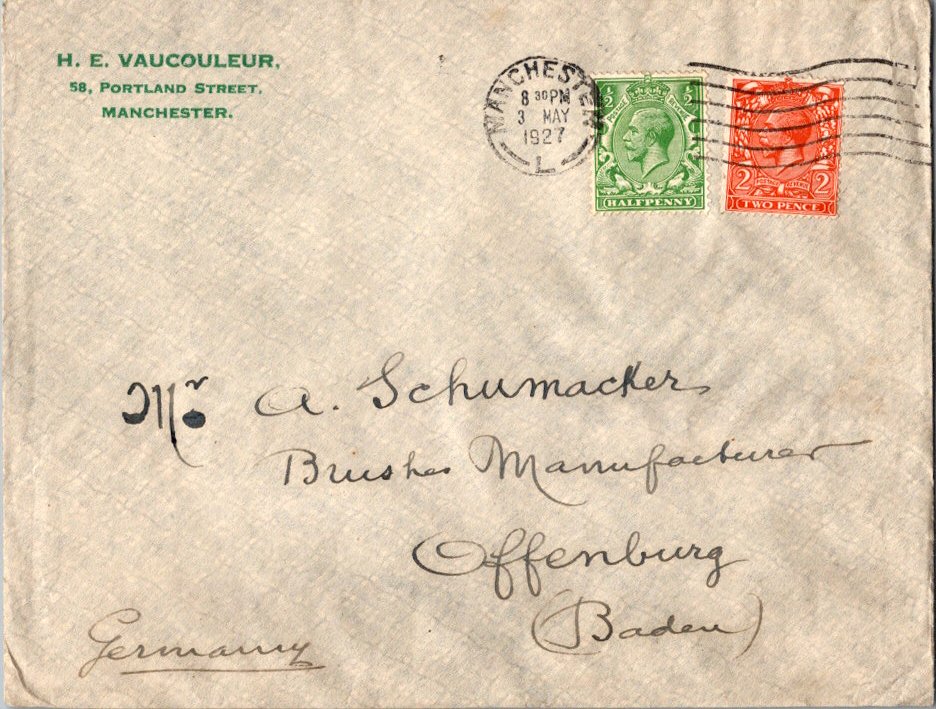 H. E. VAUCOULEUR,
58, PORTLAND STREET,
MANCHESTER.
MANCHESTER
8 30 PM
3 MAY
1927
L
½ ½
POSTAGE REVENUE
HALFPENNY
2 2
POSTAGE REVENUE
TWO PENCE
Mr A. Schumacker
Brushes Manufacturer
Offenburg
(Baden)
Germany